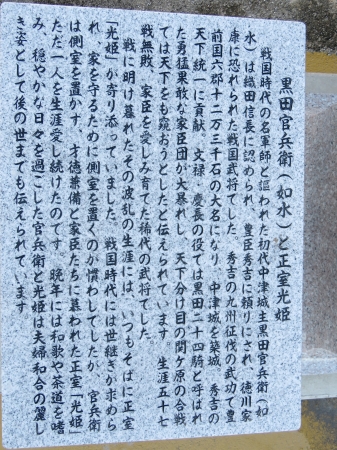 黒田官兵衛（如水）と正室光姫
戦国時代の名軍師と謳われた初代中津城主黒田官兵衛（如
水）は織田信長に認められ、豊臣秀吉に頼りにされ、徳川家
康に恐れられた戦国武将でした。秀吉の九州征伐の武功で豊
前国六郡十二万三千石の大名になり、中津城を築城、秀吉の
天下統一に貢献、文禄・慶長の役では黒田二十四騎と呼ばれ
た勇猛果敢な家臣団が大暴れし、天下分け目の関ヶ原の合戦
では天下をも窺おうとしたと伝えられています。生涯五十七
戦無敗、家臣を愛しみ育てた稀代の武将でした。
戦に明け暮れたその波乱の生涯には、いつもそばに正室
「光姫」が寄り添っていました。戦国時代には世継ぎが求めら
れ、家を守るために側室を置くのが慣わしでしたが、官兵衛
は側室を置かず、才徳兼備と家臣たちに慕われた正室「光姫」
ただ一人を生涯愛し続けたのです。晩年には和歌や茶道を嗜
み、穏やかな日々を過ごした官兵衛と光姫は夫婦和合の麗し
き姿として後の世までも伝えられています